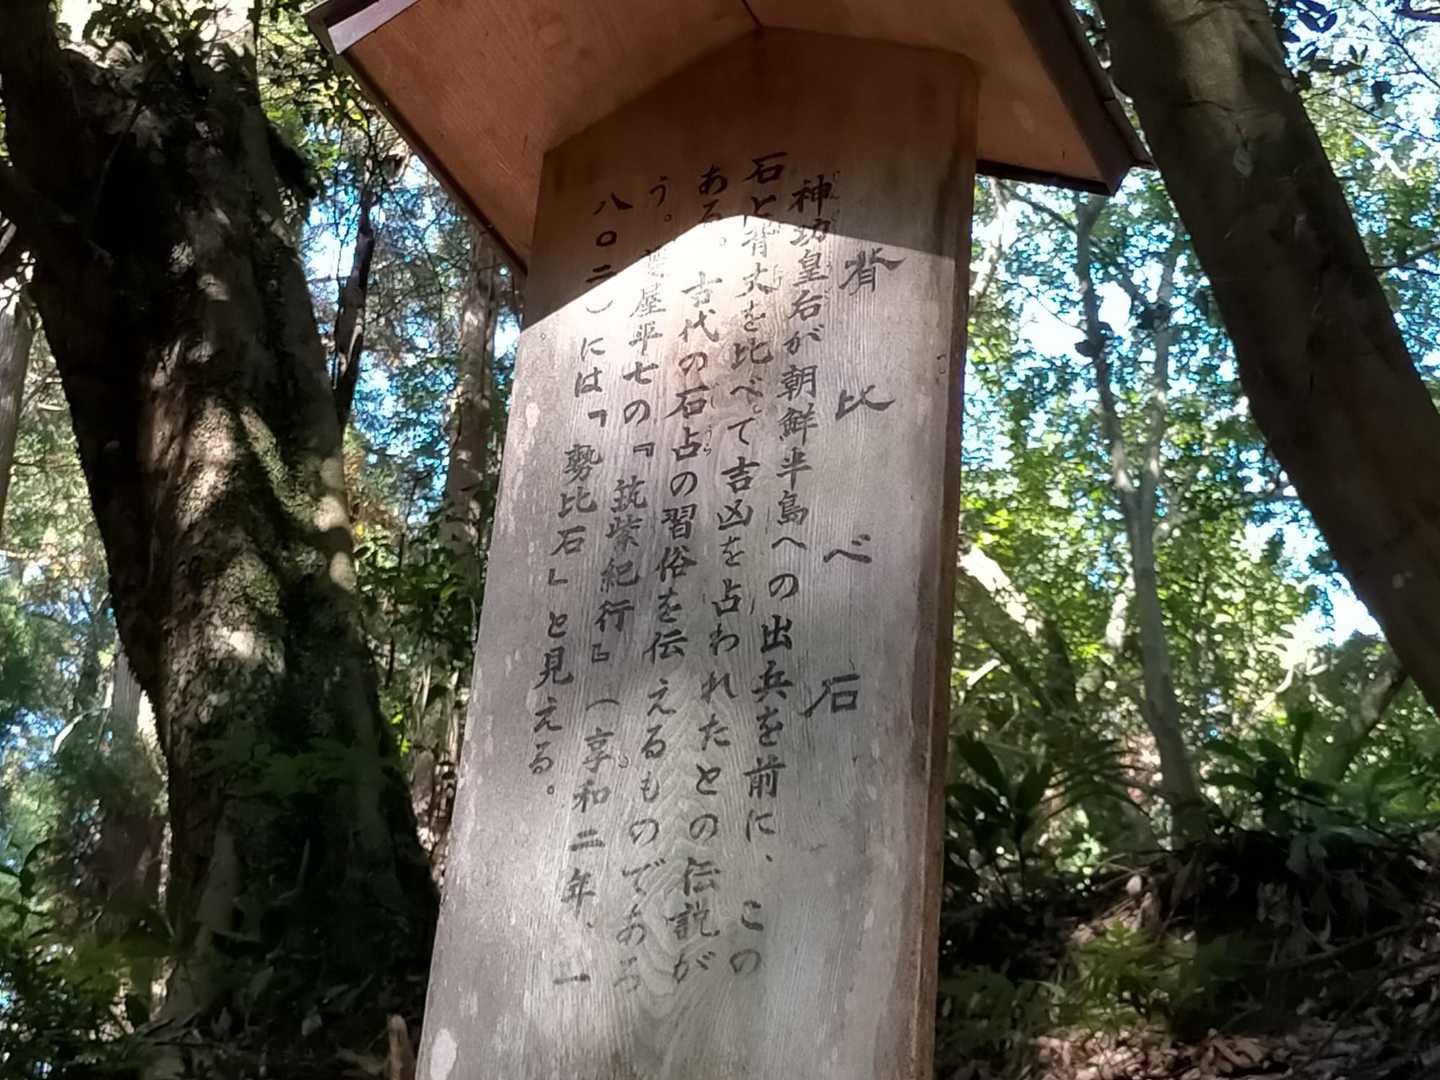 背比べ石
神功皇后が朝鮮半島への出兵を前に、この
石と背丈を比べて吉凶を占われたとの伝説が
ある。古代の石占の習俗を伝えるものであろ
う。菱屋平七の『筑紫紀行』(享和二年、一
八〇二)には「勢比石」と見える。